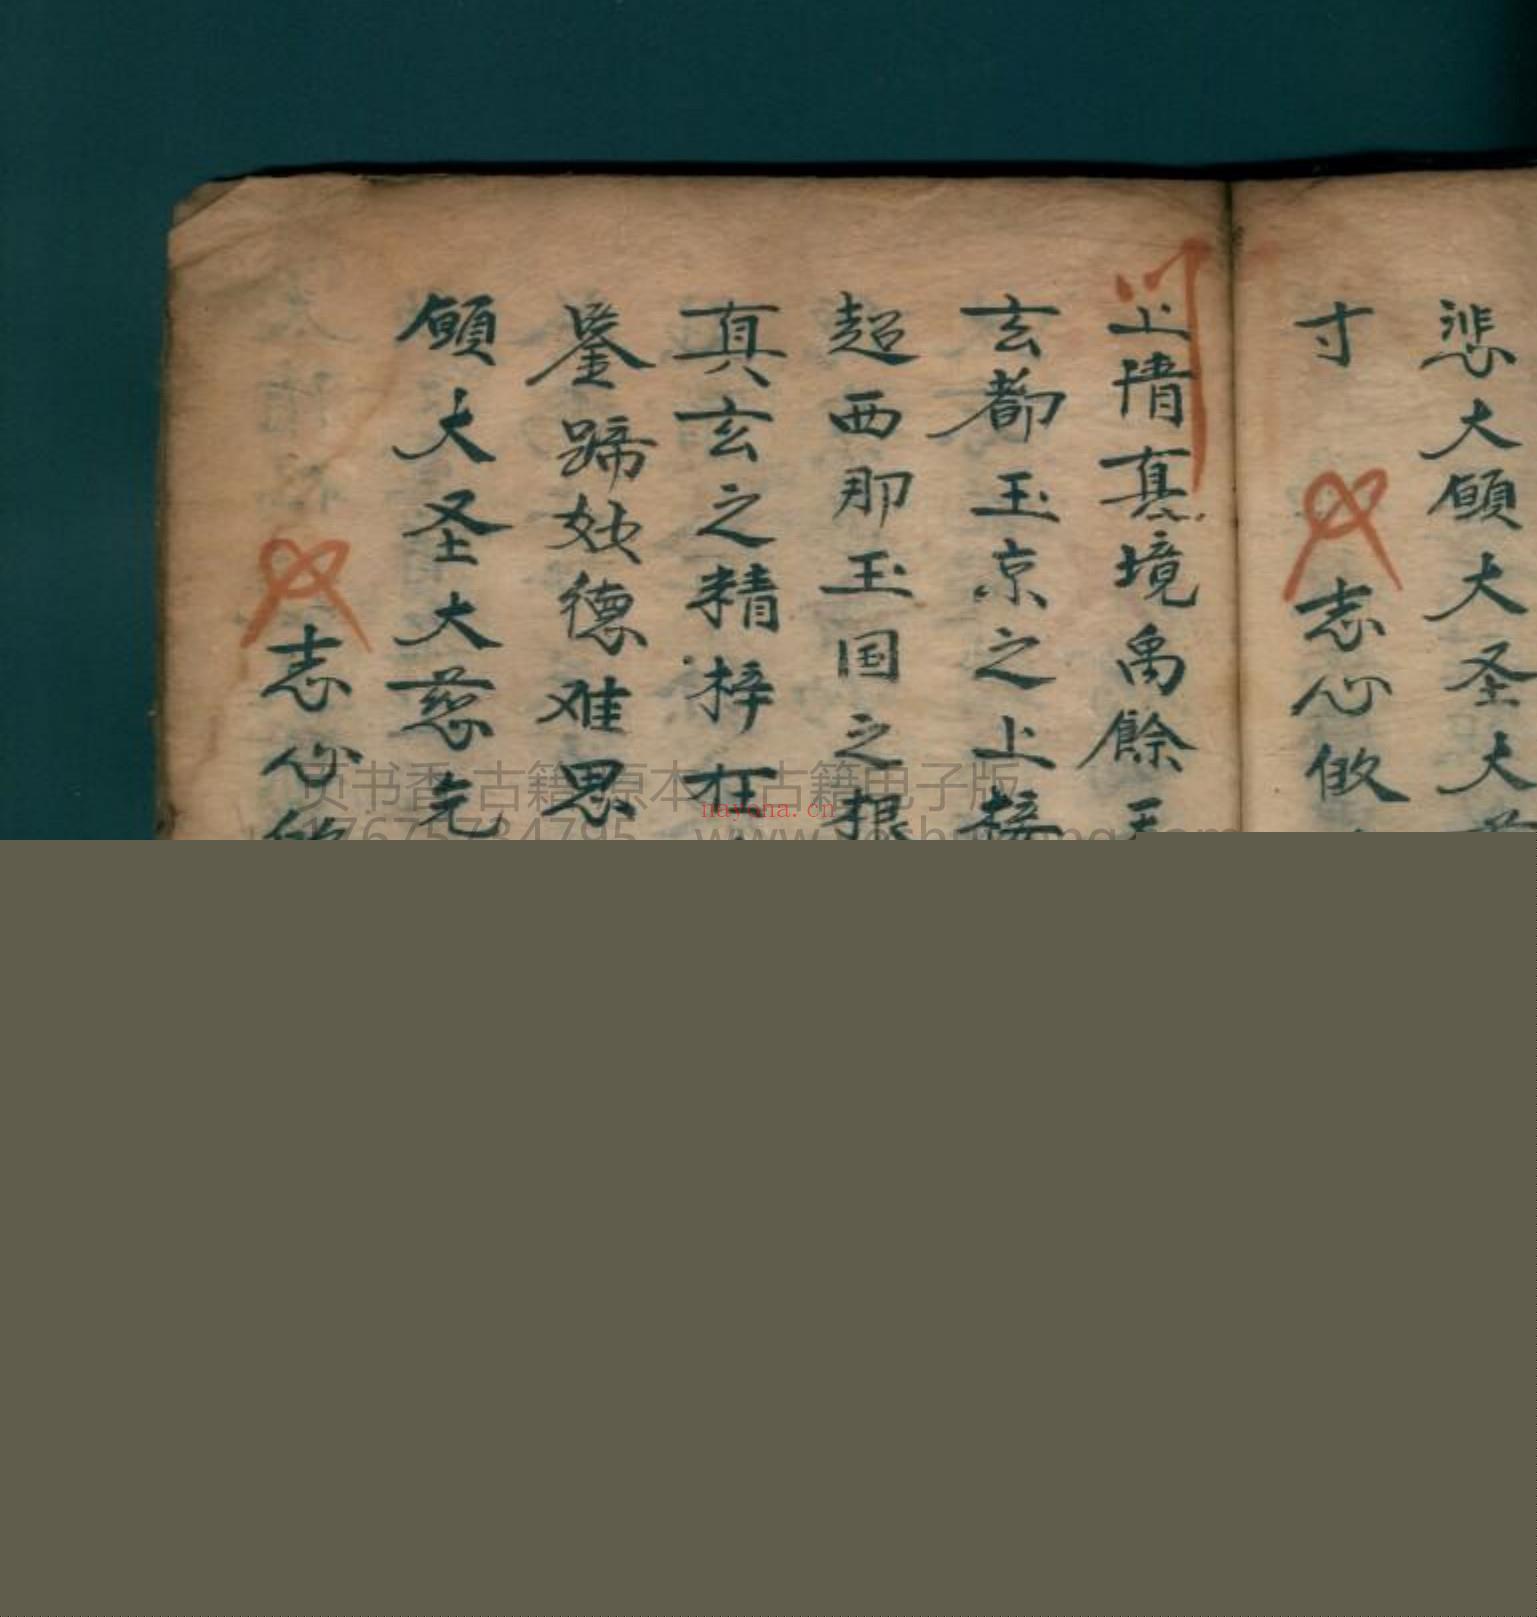 悲大願大圣大
寸 志心傚
上清真境禹餘天
玄都玉京之上接
超西那玉国之根
真玄之精梓在
鉴蹄妙德难思
願大圣大慈先
志心
页书香古籍原本 古籍电子版
nayona.cn
17675784795